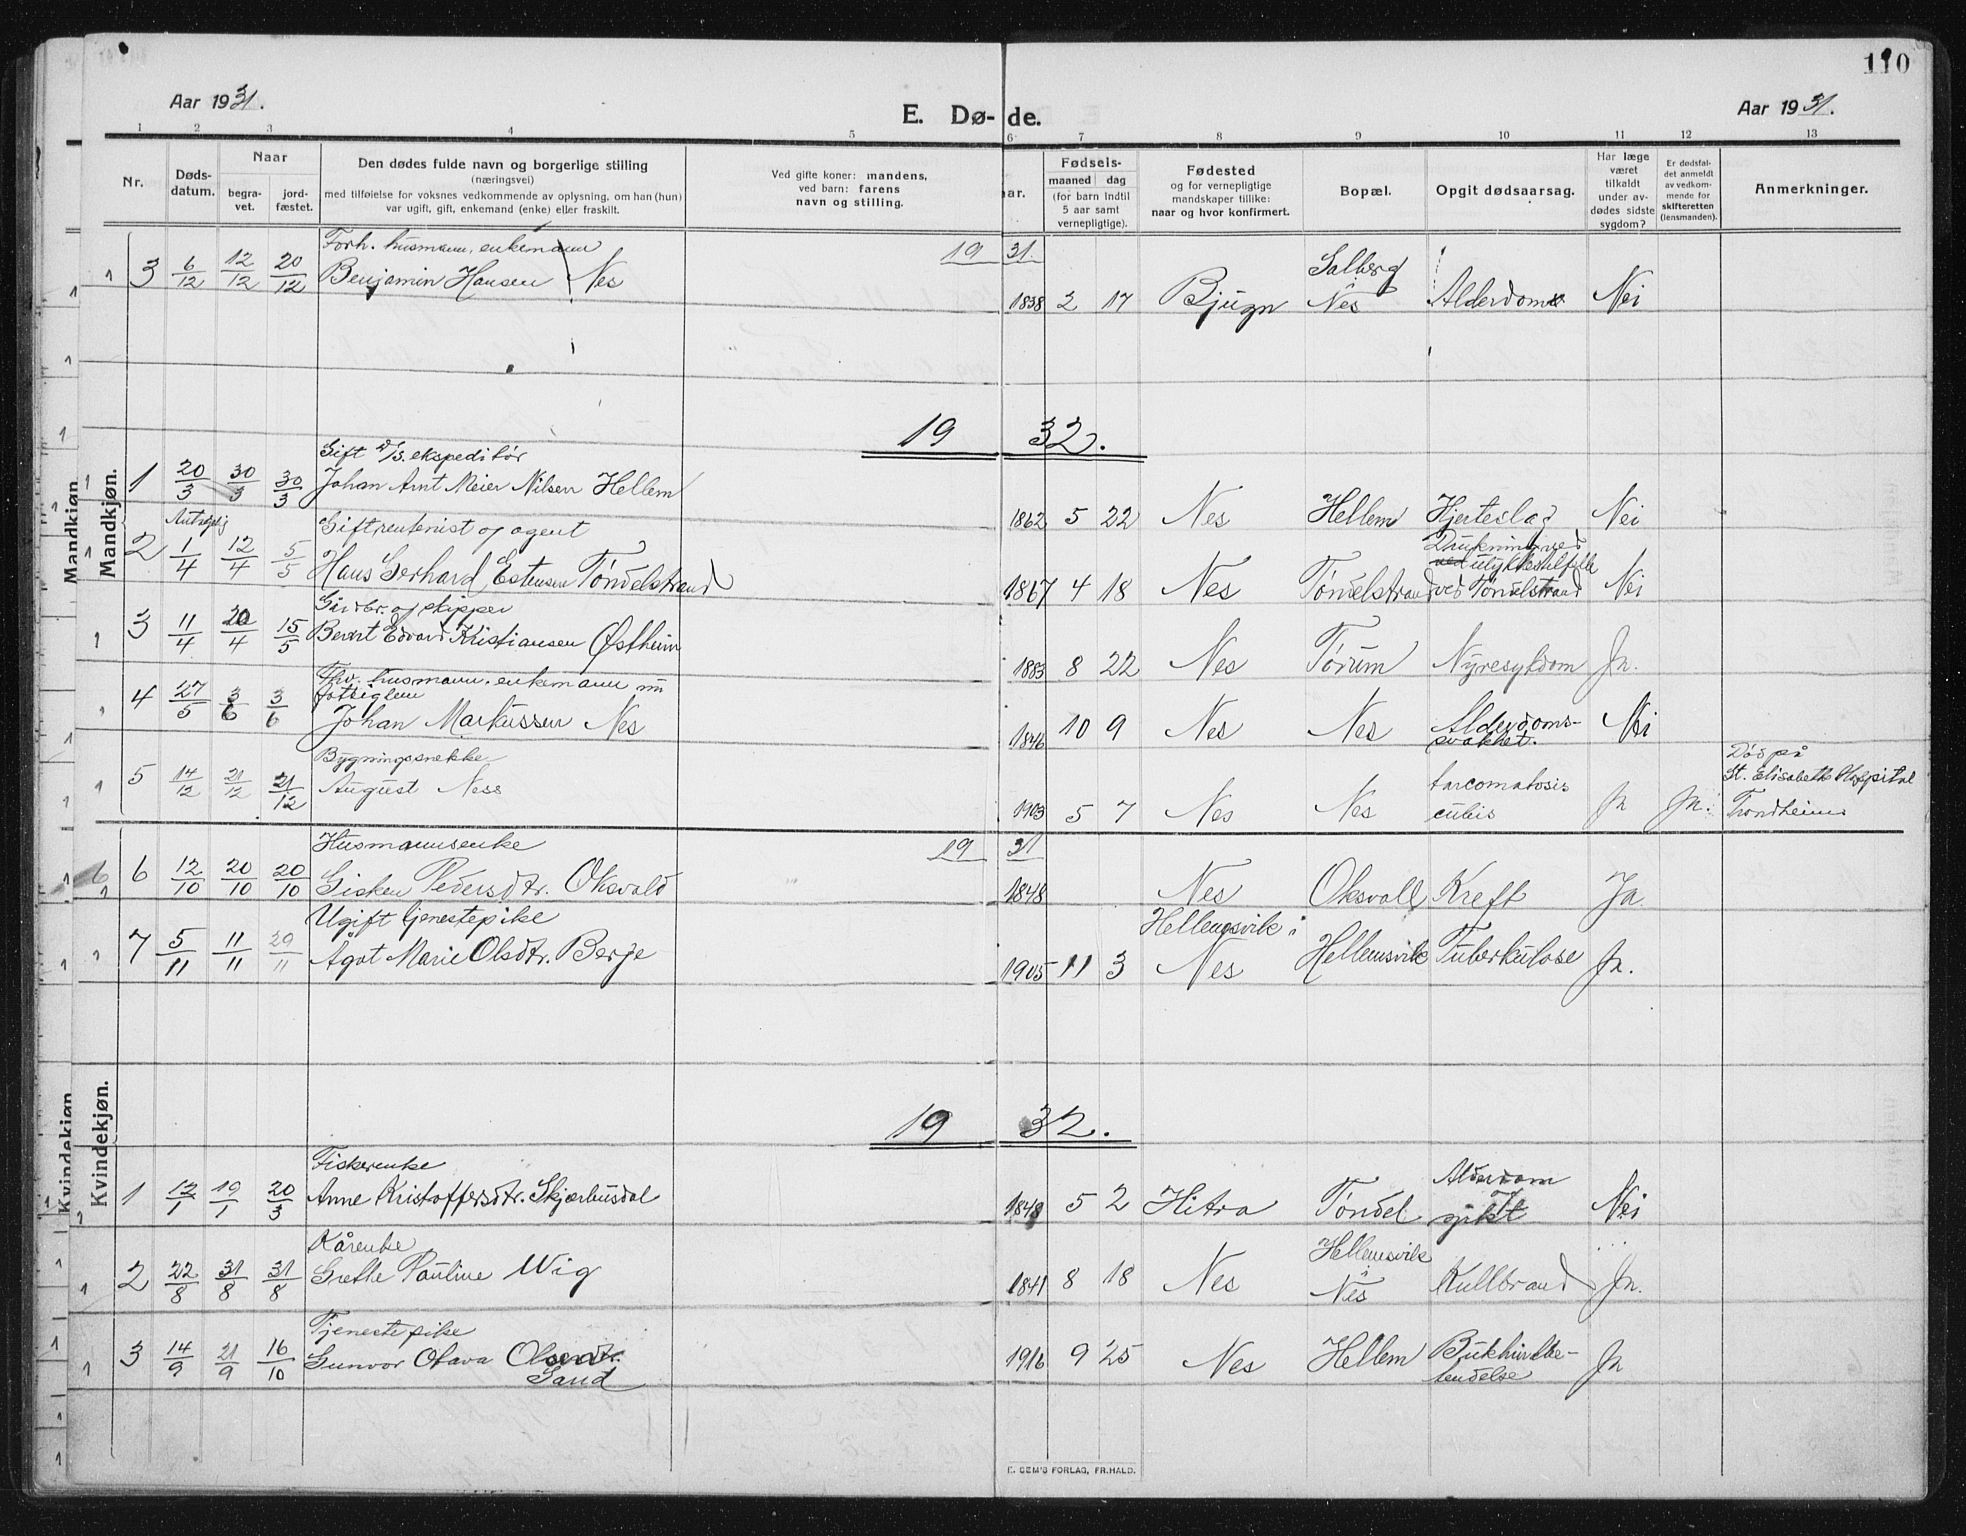 110
Aar 1931.
E. Dø-de.
Aar 1931.
1 2 3 4 5 6 7 8 9 10 11 12 13
Nr.
Døds-
datum.
Naar
begra-
vet.
jord-
fæstet.
Den dødes fulde navn og borgerlige stilling
(næringsvei)
med tilføielse for voksnes vedkommende av oplysning, om han (hun)
var ugift, gift, enkemand (enke) eller fraskilt.
Ved gifte koner: mandens,
ved barn: farens
navn og stilling.
ar.
Fødsels-
maaned dag
(for barn indtil
5 aar samt
vernepligtige).
Fødested
og for vernepligtige
mandskaper tillike:
naar og hvor konfirmert.
Bopæl.
Opgit dødsaarsag.
Har læge
været
tilkaldt
under av-
dødes sidste
sygdom?
Er dødsfal-
det anmeldt
av vedkom-
mende for
skifteretten
(lensmanden).
Anmerkninger.
Mandkjøn.
Mandkjøn.
1931.
Forh. husmann, enkemann
3 6/12 12/12 20/12 Benjamin Hansen Nes 1838 2 17 Bjugn Salberg Nes Alderdom Nei
1932.
Gift D/S. ekspeditør
1 20/3 30/3 30/3 Johan Arnt Meier Nilsen Hellem 1862 5 22 Nes Hellem Hjerteslag Nei
Antagelig Gift rentenist og agent
2 1/4 12/4 5/5 Hans Gerhard Estensen Tøndelstrand 1867 4 18 Nes Tøndelstrand Drukning ved ulykkestilfelle ved Tøndelstrand Nei
Gårdbr. og skipper
3 11/4 20/4 15/5 Bernt Edvard Kristiansen Østheim 1883 8 22 Nes Tørum Nyresykdom Ja.
Fhv. husmann, enkemann nu
fattiglem
4 27/5 3/6 3/6 Johan Markussen Nes 1846 10 9 Nes Nes Alderdoms-
svakhet. Nei
Bygningssnekker
5 14/12 21/12 21/12 August Ness 1903 5 7 Nes Nes sarcomatosis
cutis Ja Ja. Død på
St. Elisabeths Hospital
Trondheim
Kvindekjøn
Kvindekjøn.
1931
Husmannsenke
6 12/10 20/10 20/10 Gisken Pedersdtr. Oksvold 1848 Nes Oksvoll Kreft Ja
Ugift tjenestepike
7 5/11 11/11 29/11 Agot Marie Olsdtr. Berge 1905 11 3 Hellemsvik i Nes Hellemsvik Tuberkulose Ja.
1932.
Fiskerenke
1 12/1 19/1 20/3 Anne Kristoffersdtr. Skjærhusdal 1848 5 2 Hitra Tøndel Alderdom
gikt Nei
Kårenke
2 22/8 31/8 31/8 Grethe Pauline Wig 1841 8 18 Nes Hellemsvik i Nes Kullbrand Ja.
Tjenestepike
3 14/9 21/9 16/10 Gunvor Olava Olsendtr.
Sand 1916 9 25 Nes Hellem Bukhinnebe-
tendelse Ja
E. SEM'S FORLAG, FR.HALD.